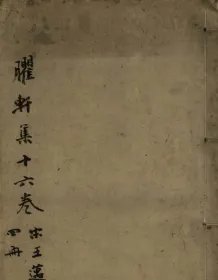 臞軒集十六卷
宋王邁
四册